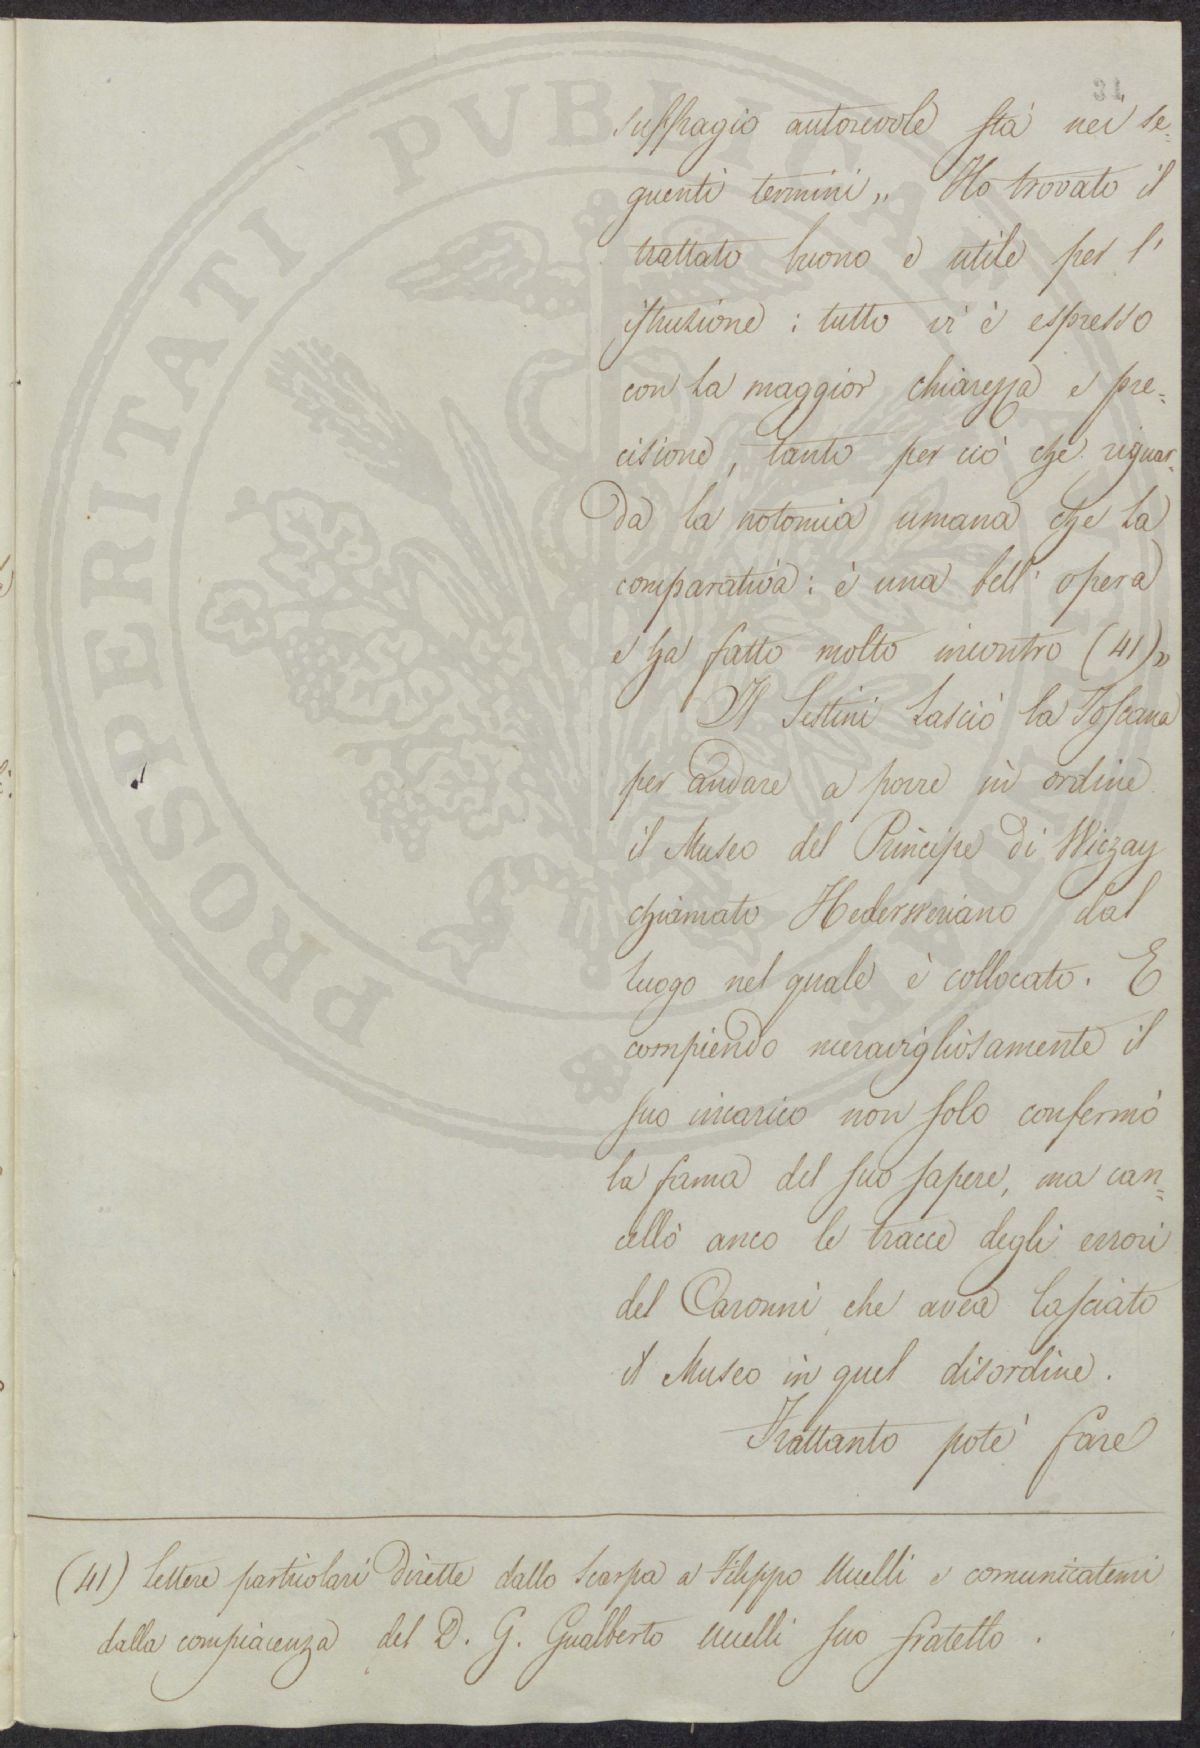 suffragio autorevole sta nei se=
guenti termini „ Ho trovato il
trattato buono e utile per l'
istruzione : tutto vi è espresso
con la maggior chiarezza e pre=
cisione, tanto per ciò che riguar=
da la notomia umana che la
comparativa : è una bell' opera
e ha fatto molto incontro (41) „
Il Sestini lasciò la Toscana
per andare a porre in ordine
il Museo del Principe di Wiczay
chiamato Hederweriano dal
luogo nel quale è collocato. E
compiendo meravigliosamente il
suo incarico non solo confermò
la fama del suo sapere, ma can=
cellò anco le tracce degli errori
del Caronni che avea lasciato
il Museo in quel disordine.
Frattanto potè fare
(41) Lettere particolari dirette dallo Scarpa a Filippo Uccelli e comunicatemi
dalla compiacenza del D. G. Gualberto Uccelli suo fratello.
PROSPERITATI PVBLICAE